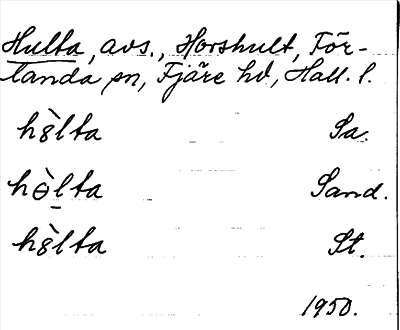 Hulta, avs., Horshult, För-
landa sn, Fjäre hd, Hall. l.
hȣ̀lta Sa.
hɵ̀lta Sand.
hȣ̀lta St.
1950.